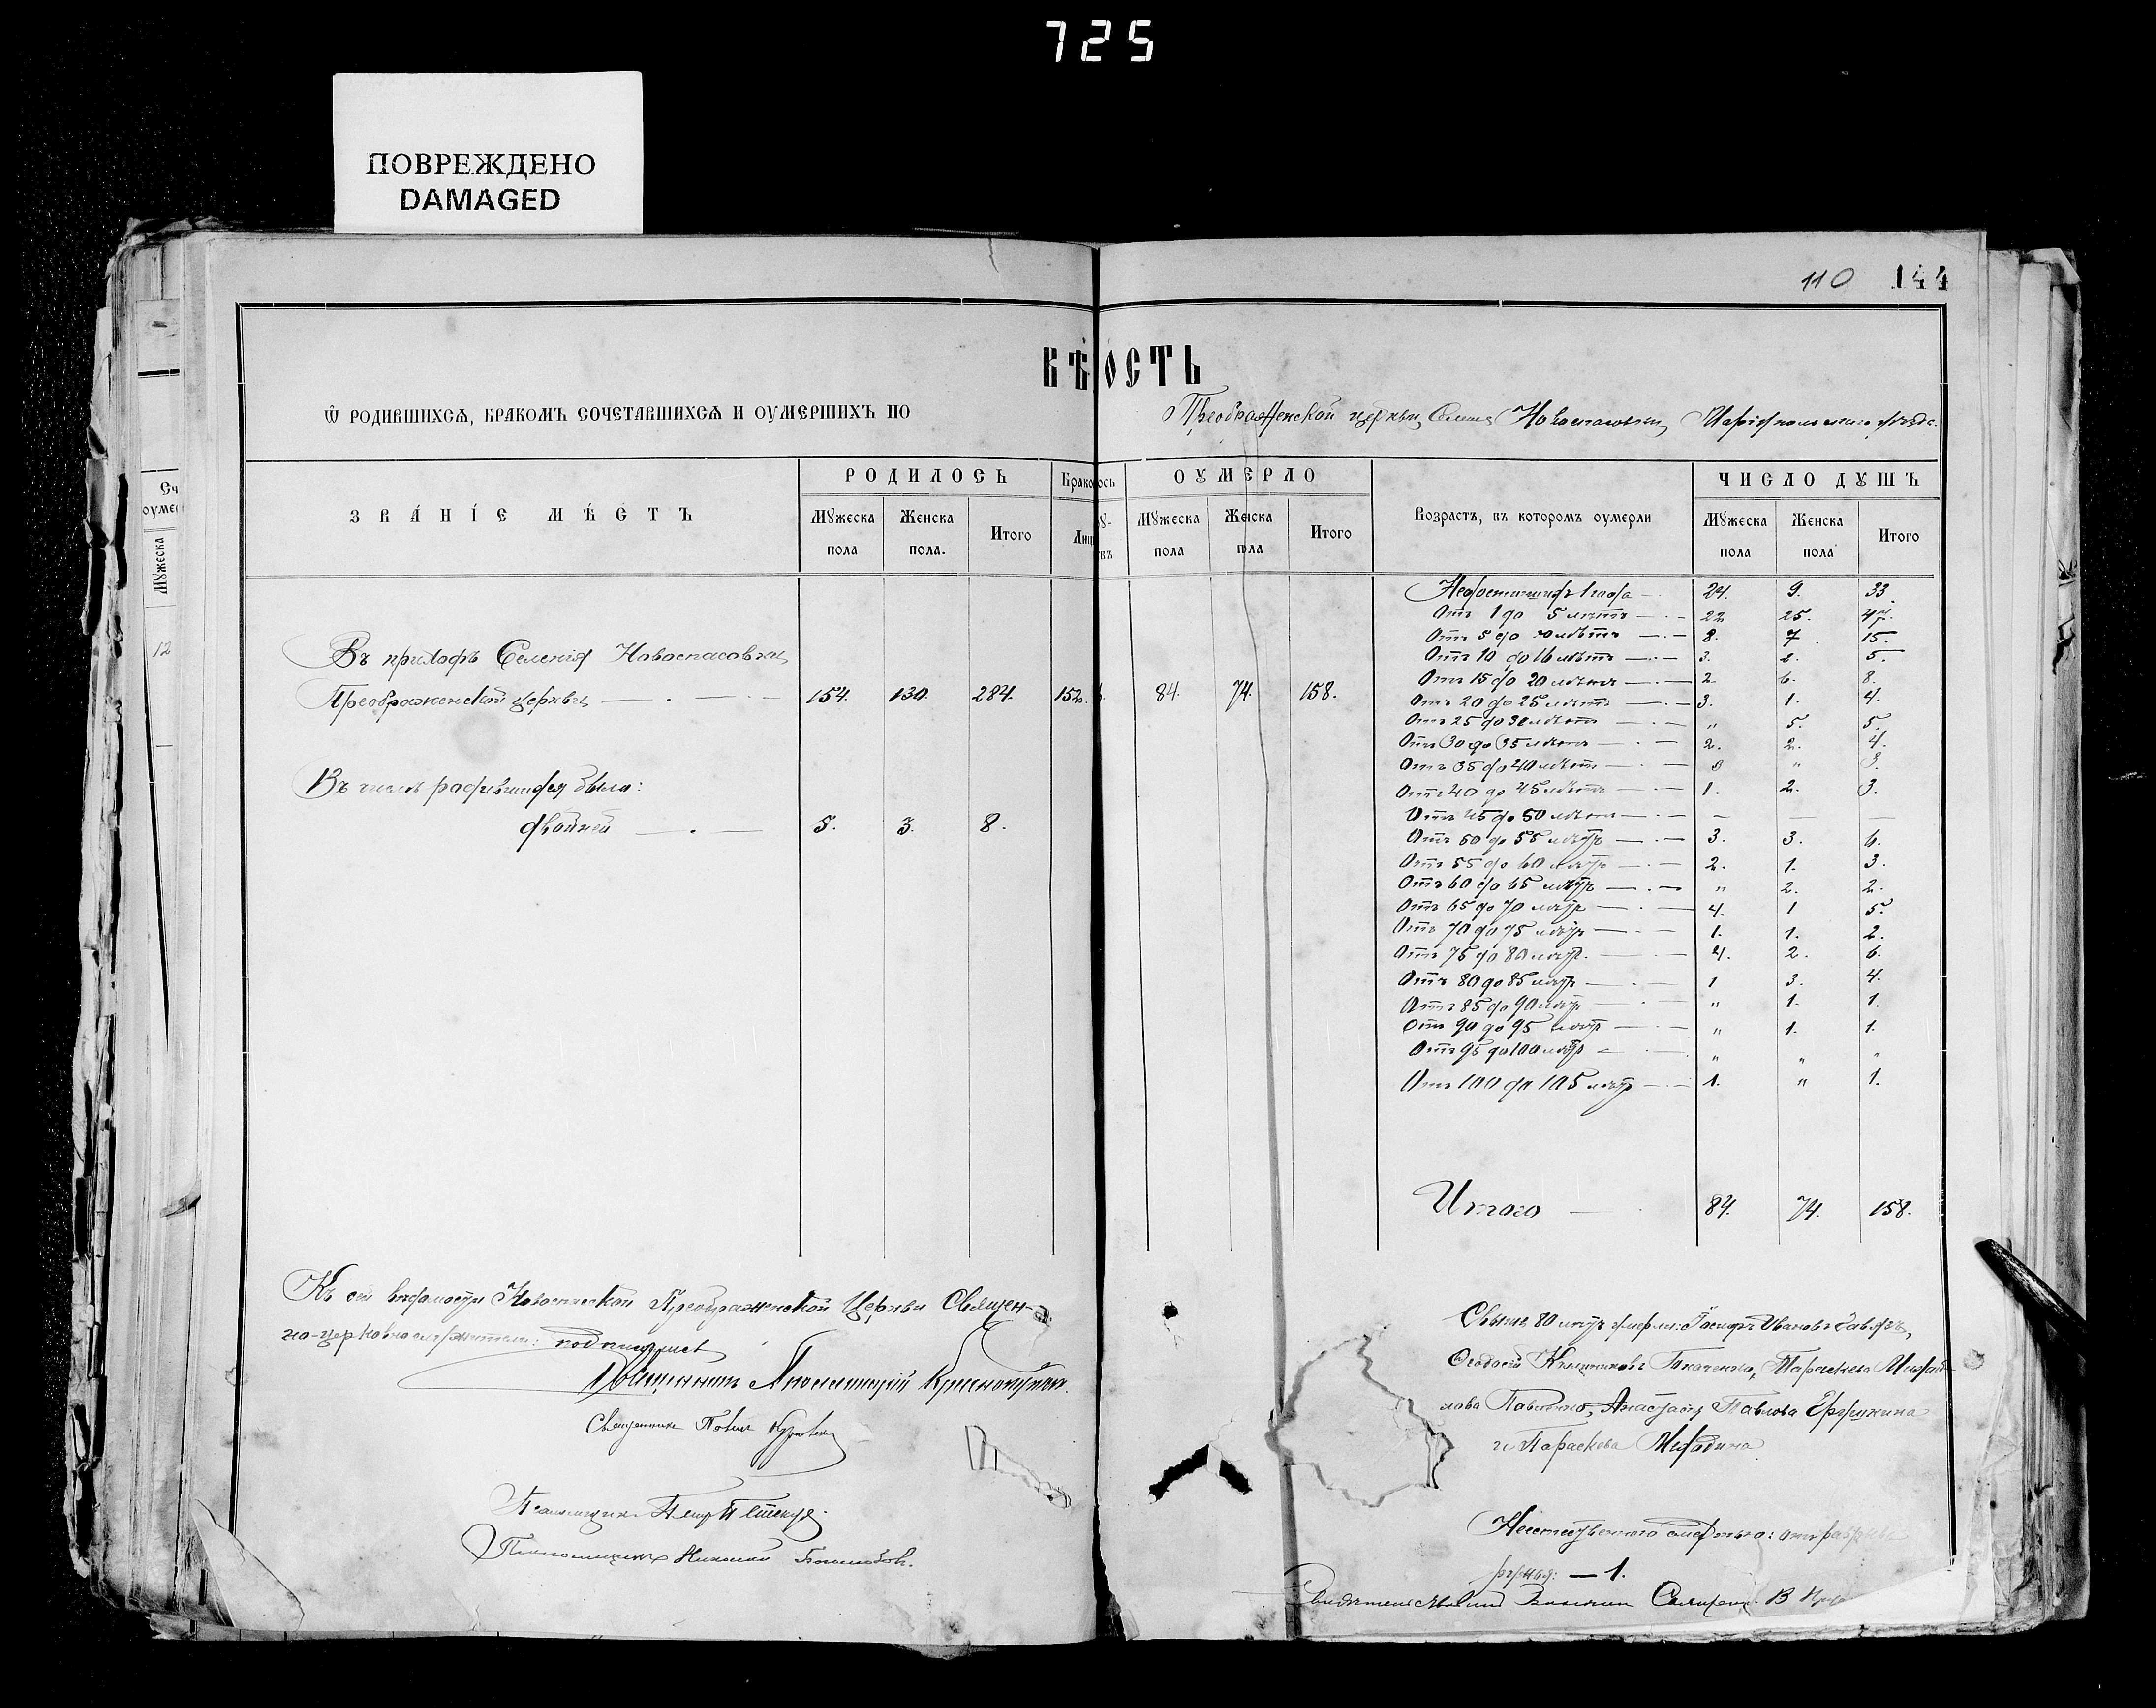 725
ПОВРЕЖДЕНО
DAMAGED
110 144
ВѢ ОСТЬ
Ѡ РОДИВШИХСѦ, БРАКОМЪ СОЧЕТАВШИХСѦ И ОУМЕРШИХЪ ПО Преображенской церкви, Новоспасовки,
ЗВА́НІЄ МѢ́СТЪ
РОДИЛОСЬ
Мꙋжеска пола
Женска пола.
Итого
Брако ось
ОУМЕРЛО
Мꙋжеска пола
Женска пола
Итого
Возрастъ, въ которомъ оумерли
ЧИСЛО ДꙊШЪ
Мꙋжеска пола
Женска пола
Итого
Сч
оумеі
Мꙋжеска
12
Въ приходѣ Селенія Новоспасовки
Преображенской церкви — . — . — 154. 130. 284. 152. 84. 74. 158.
Въ числѣ родившихся было:
двойней — . — 5. 3. 8.
Недостигшихъ 1 года — 24. 9. 33.
Отъ 1 до 5 лѣтъ — . — 22 25. 47.
Отъ 5 до 10 лѣтъ — . — 8. 7. 15.
Отъ 10 до 16 лѣтъ — . — 3. 2. 5.
Отъ 15 до 20 лѣтъ — . — 2. 6. 8.
Отъ 20 до 25 лѣтъ — . — 3. 1. 4.
Отъ 25 до 30 лѣтъ — . — " 5. 5.
Отъ 30 до 35 лѣтъ — . — 2. 2. 4.
Отъ 35 до 40 лѣтъ — . — 3 " 3.
Отъ 40 до 45 лѣтъ — . — 1. 2. 3.
Отъ 45 до 50 лѣтъ — . — — — —
Отъ 50 до 55 лѣтъ — . — 3. 3. 6.
Отъ 55 до 60 лѣтъ — . — 2. 1. 3.
Отъ 60 до 65 лѣтъ — . — " 2. 2.
Отъ 65 до 70 лѣтъ — . — 4. 1 5.
Отъ 70 до 75 лѣтъ — . — 1. 1. 2.
Отъ 75 до 80 лѣтъ. — . — 4. 2. 6.
Отъ 80 до 85 лѣтъ — . — 1 3. 4.
Отъ 85 до 90 лѣтъ — . — " 1. 1.
Отъ 90 до 95 лѣтъ — . — " 1. 1.
Отъ 95 до 100 лѣтъ — . — " " "
Отъ 100 до 105 лѣтъ — . — 1. " 1.
Итого — . 84. 74. 158.
Къ сей вѣдомости Новоспасской Преображенской Церкви Священ-
но-церковнослужители: подписались
Священникъ
Священникъ Павелъ
Псаломщикъ Петръ
Псаломщикъ Николай
Свыше 80 лѣтъ умерли: Іосифъ Ивановъ
Ткаченко, Параскева
Анастасія Павлова
и Параскева
Неестественною смертью: отъ
— 1.